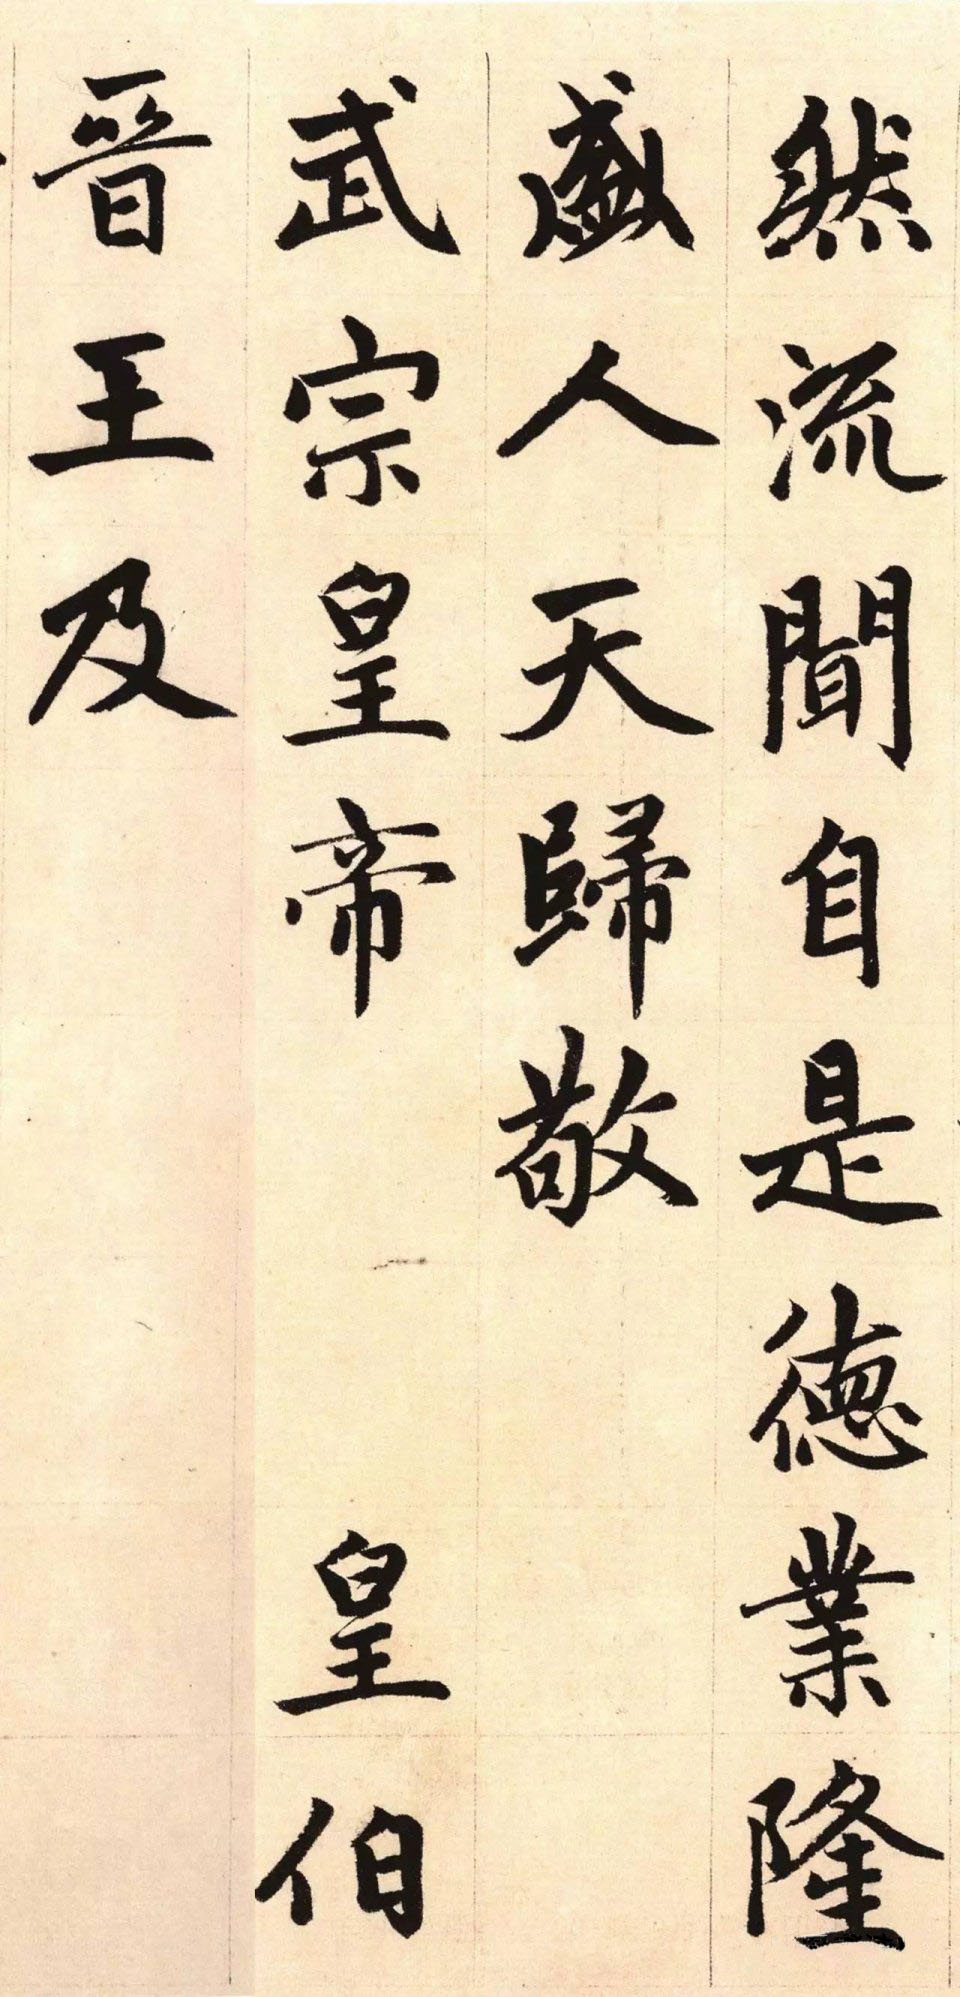 然流聞自是德業隆
盛人天歸敬
武宗皇帝　皇伯
晉王及